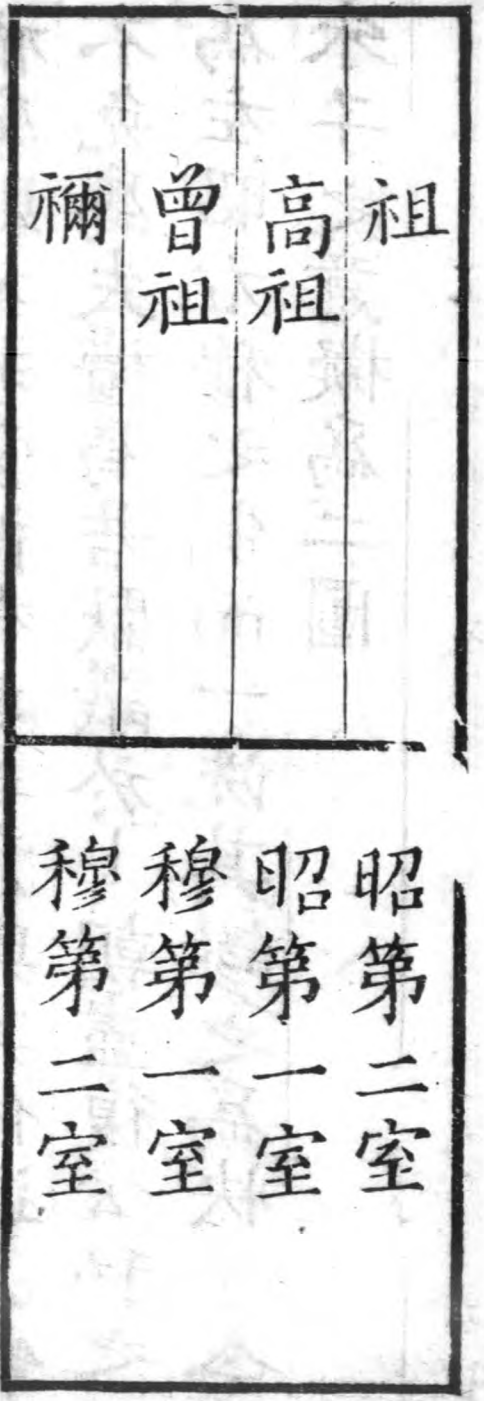 祖
高祖
曾祖
禰
昭第二室
昭第一室
穆第一室
穆第二室